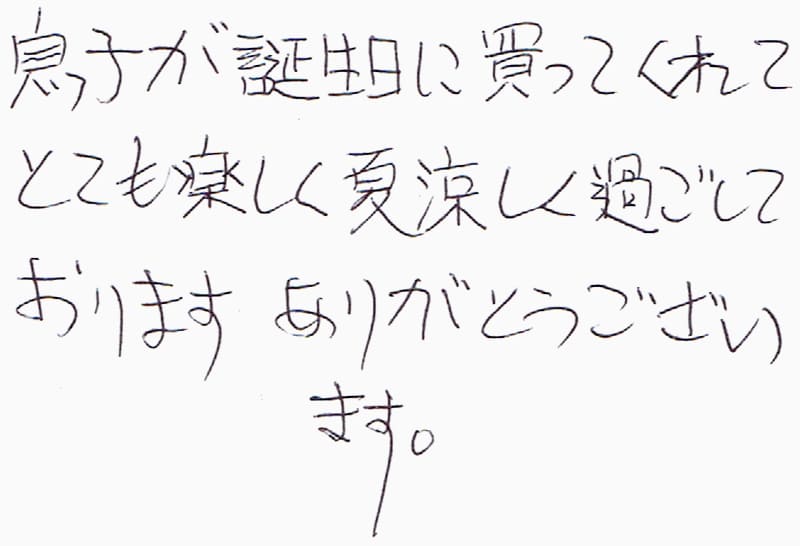 息子が誕生日に買ってくれて
とても楽しく夏涼しく過ごして
おります ありがとうござい
ます。